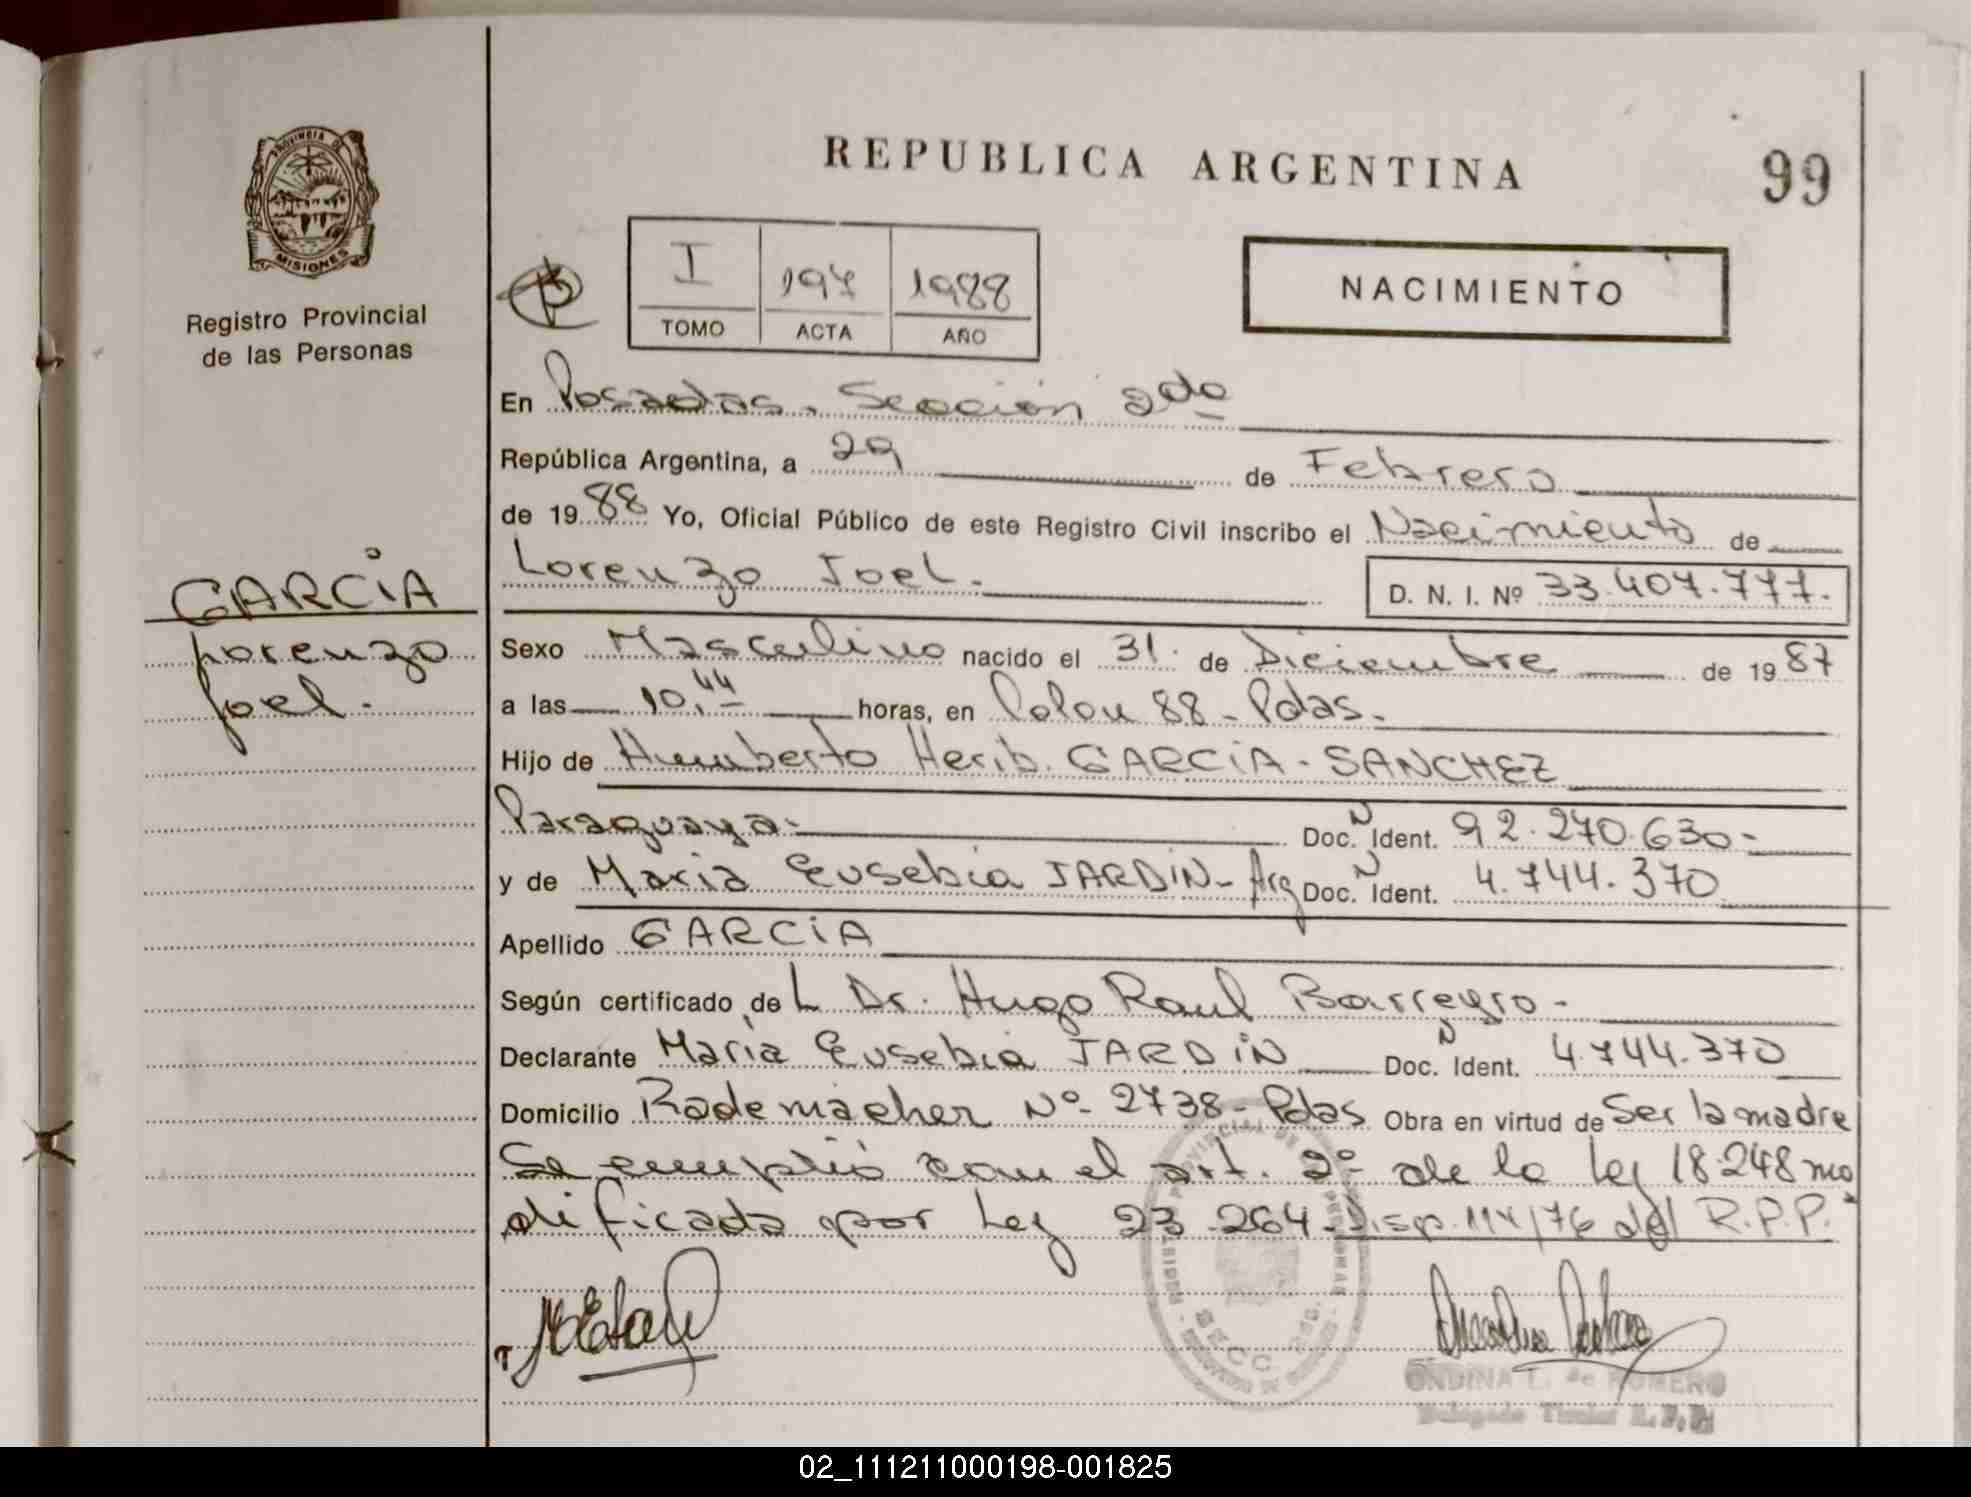 PROVINCIA DE
MISIONES
Registro Provincial
de las Personas
GARCIA
Lorenzo
Joel.
REPUBLICA ARGENTINA
99
I 197 1988
TOMO ACTA AÑO
NACIMIENTO
En Posadas. Sección 2da
República Argentina, a 29 de Febrero
de 1988 Yo, Oficial Público de este Registro Civil inscribo el Nacimiento de
Lorenzo Joel. D. N. I. Nº 33.407.777.
Sexo Masculino nacido el 31 de Diciembre de 1987
a las 10,44 horas, en Colon 88 - Pdas.
Hijo de Humberto Herib. GARCIA - SANCHEZ
Paraguaya - Doc. N Ident. 92.270.630-
y de Maria Eusebia JARDIN - Arg Doc. N Ident. 4.744.370
Apellido GARCIA
Según certificado de L Dr. Hugo Raul Barreyro -
Declarante Maria Eusebia JARDIN Doc. N Ident. 4.744.370
Domicilio Rademacher Nº 2738 - Pdas Obra en virtud de Ser la madre
Se cumplió con el art. 2º de la Ley 18.248 mo
dificada por Ley 23.264. Disp. 114/76 del R.P.P.
ONDINA L. de ROMERO
Delegada Titular R.P.P.
02_111211000198-001825